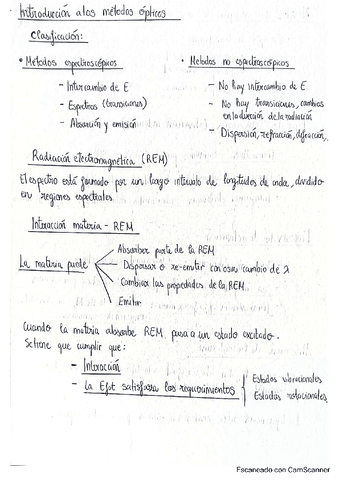 Introducción a los métodos ópticos
Clasificación:
• Métodos espectroscópicos
- Intercambio de E
- Espectros (transiciones)
- Absorción y emisión
• Métodos no espectroscópicos
- No hay intercambio de E
- No hay transiciones, cambios
en la dirección de la radiación
- Dispersión, refracción, difracción,
Radiación electromagnética (REM)
El espectro está formado por un largo intervalo de longitudes de onda, dividido
en regiones espectrales
Interacción materia - REM
La materia puede
Absorber parte de la REM
Dispersar o re-emitir con o sin cambio de λ
Cambiar las propiedades de la REM
Emitir
Cuando la materia absorbe REM, pasa a un estado excitado.
Se tiene que cumplir que:
- Interacción
- La Efot satisfaga los requerimientos
Estados vibracionales
Estados rotacionales
Escaneado con CamScanner